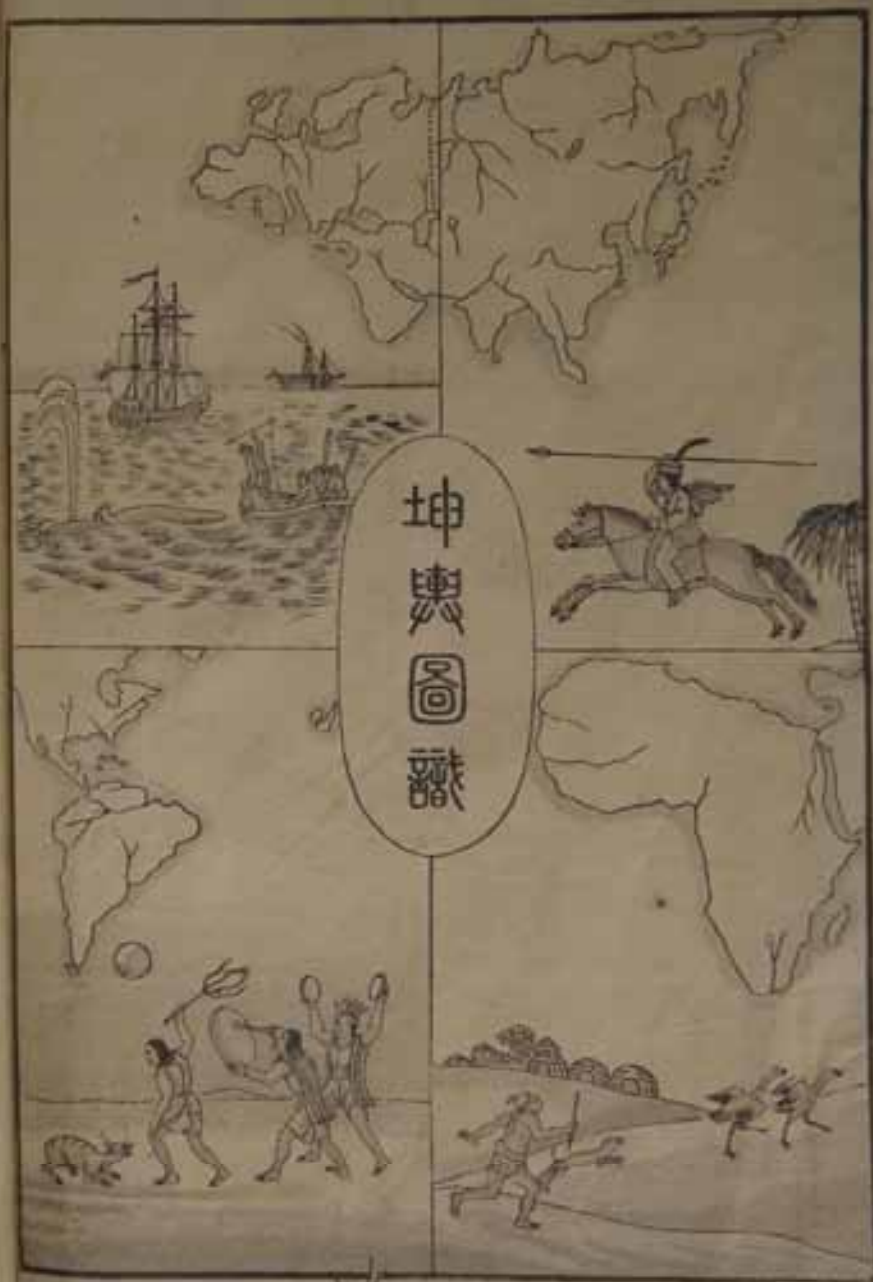 坤輿圖識